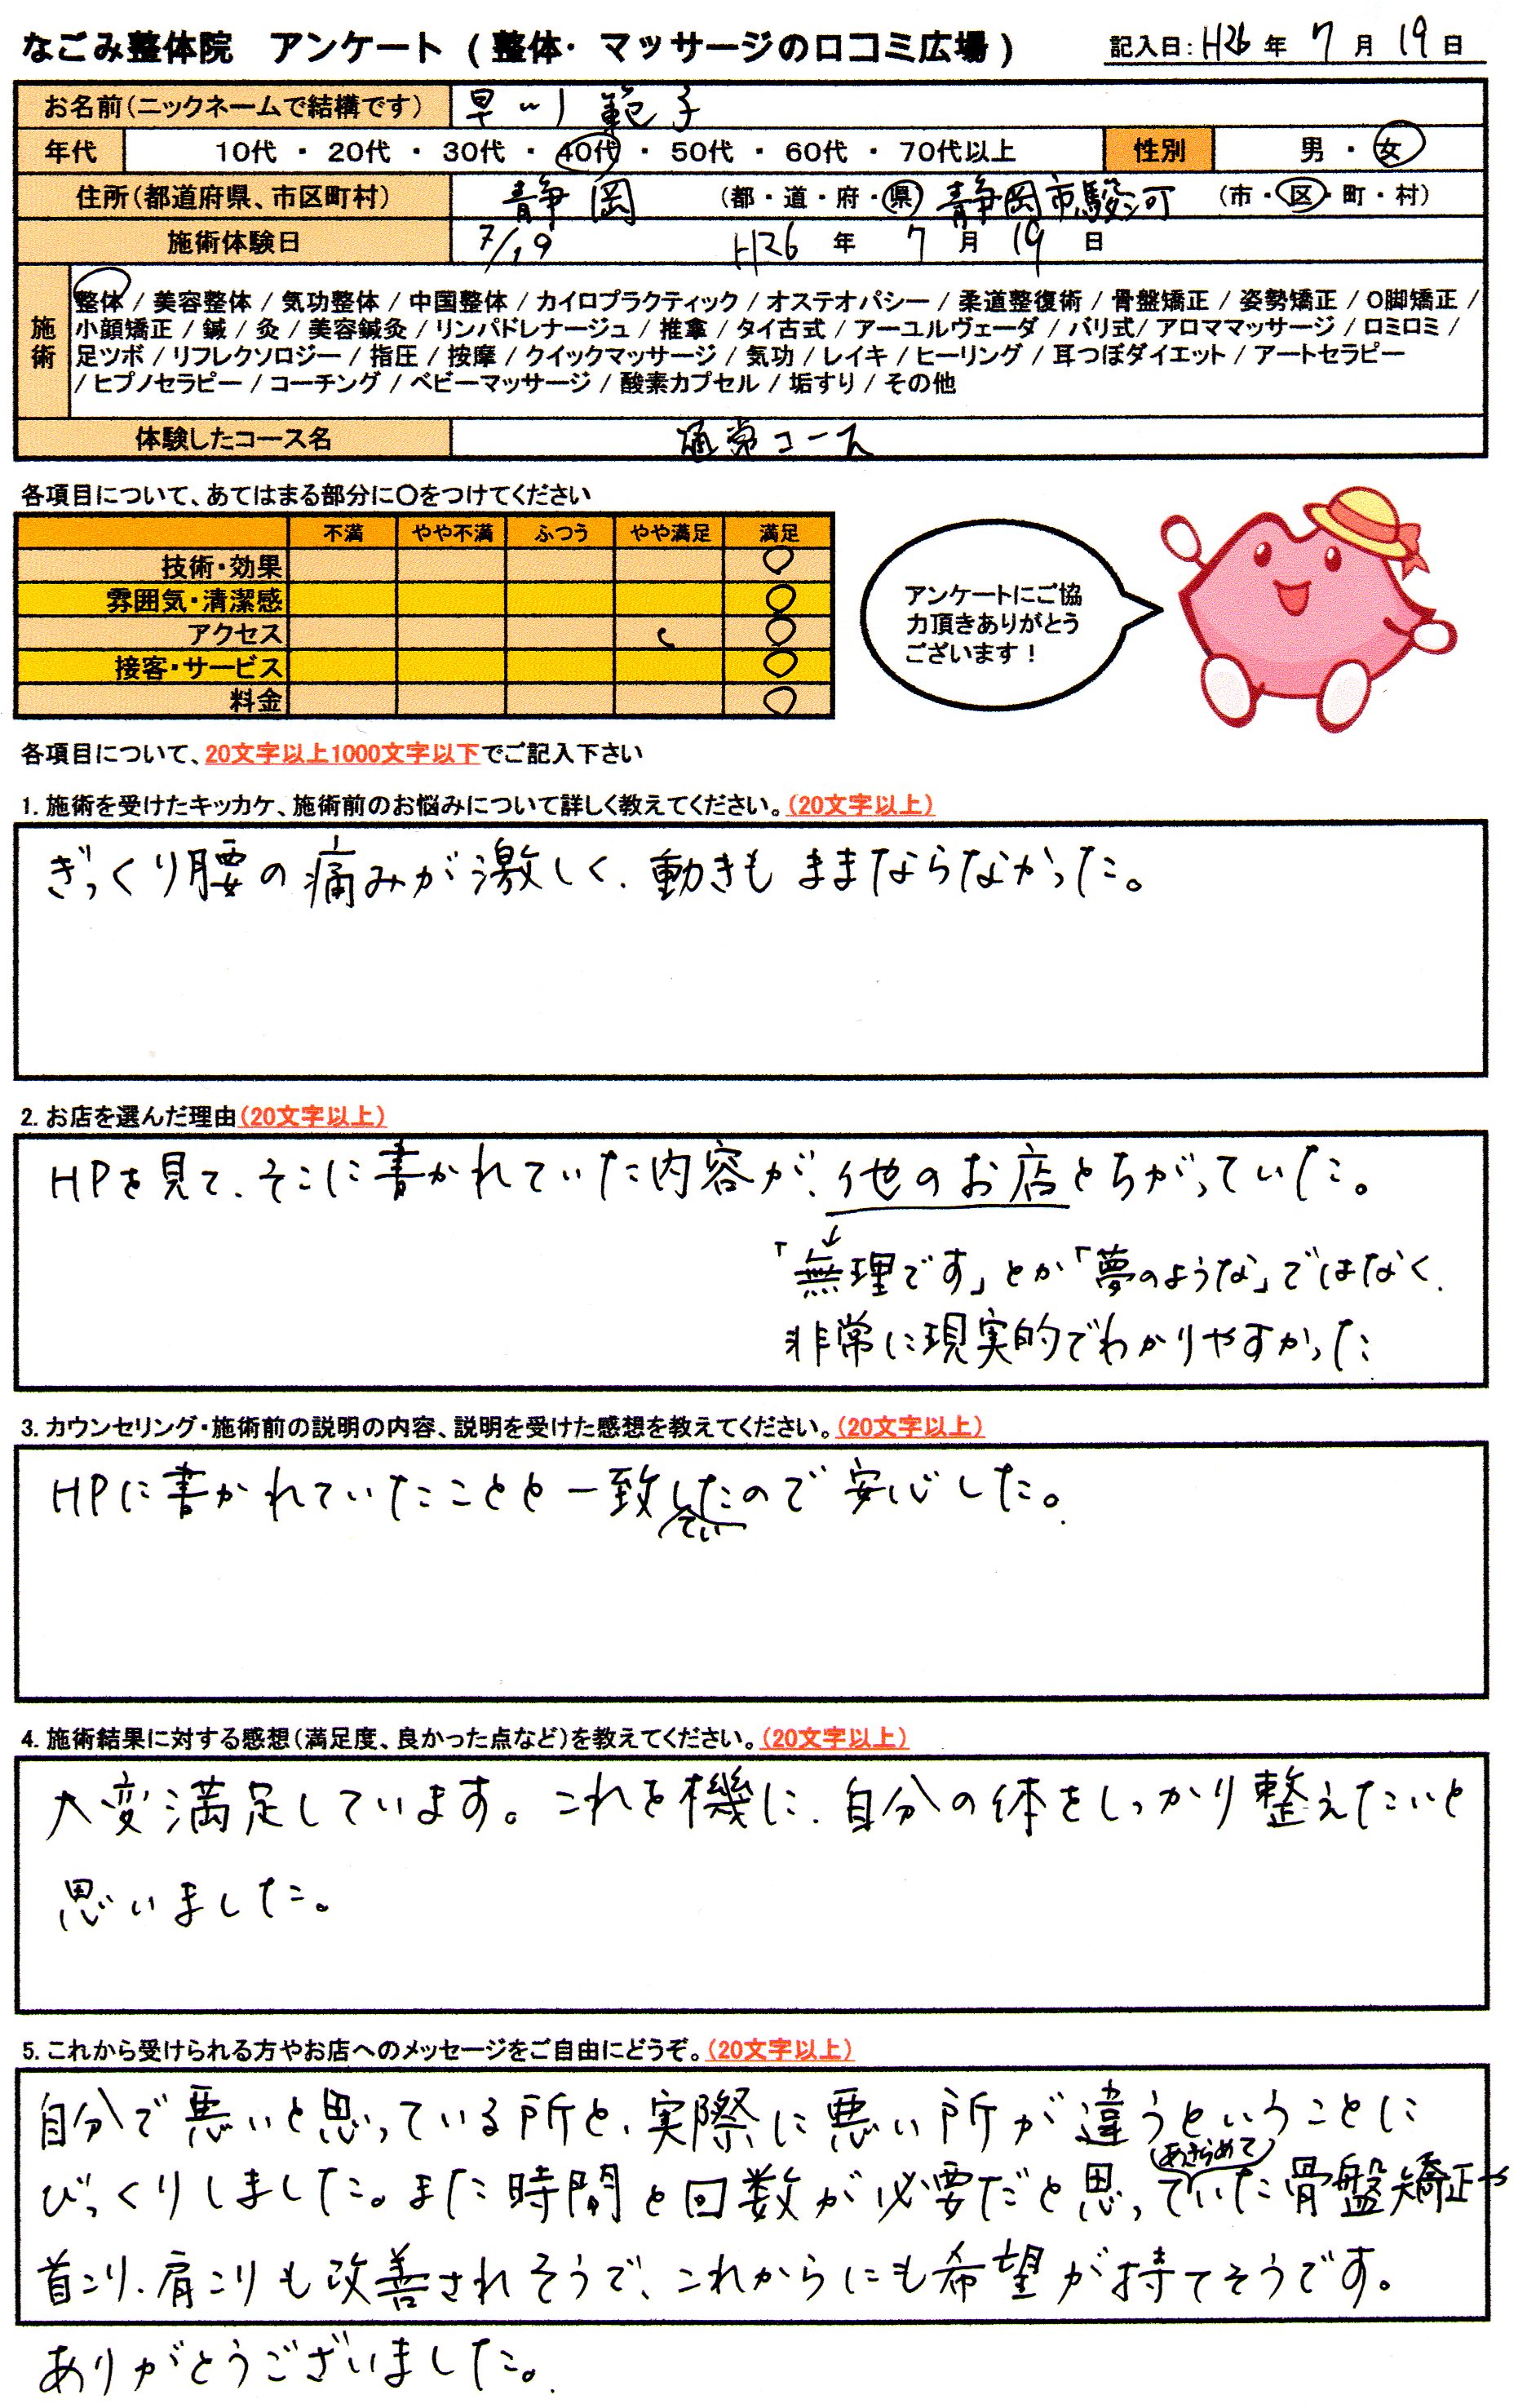 なごみ整体院 アンケート（整体・マッサージの口コミ広場）
記入日：H26年 7月 19日
お名前（ニックネームで結構です） 早川 範子
年代 10代 ・ 20代 ・ 30代 ・ 40代 ・ 50代 ・ 60代 ・ 70代以上 性別 男 ・ 女
住所（都道府県、市区町村） 静岡 （都・道・府・県） 静岡市駿河 （市・区・町・村）
施術体験日 7/19 H26 年 7 月 19 日
施術
整体 / 美容整体 / 気功整体 / 中国整体 / カイロプラクティック / オステオパシー / 柔道整復術 / 骨盤矯正 / 姿勢矯正 / O脚矯正 /
小顔矯正 / 鍼 / 灸 / 美容鍼灸 / リンパドレナージュ / 推拿 / タイ古式 / アーユルヴェーダ / バリ式/ アロママッサージ / ロミロミ /
足ツボ / リフレクソロジー / 指圧 / 按摩 / クイックマッサージ / 気功 / レイキ / ヒーリング / 耳つぼダイエット / アートセラピー
/ ヒプノセラピー / コーチング / ベビーマッサージ / 酸素カプセル / 垢すり / その他
体験したコース名 通常コース
各項目について、あてはまる部分に〇をつけてください
不満 やや不満 ふつう やや満足 満足
技術・効果 〇
雰囲気・清潔感 〇
アクセス 〇
接客・サービス 〇
料金 〇
アンケートにご協
力頂きありがとう
ございます！
各項目について、20文字以上1000文字以下でご記入下さい
1. 施術を受けたキッカケ、施術前のお悩みについて詳しく教えてください。（20文字以上）
ぎっくり腰の痛みが激しく、動きもままならなかった。
2. お店を選んだ理由（20文字以上）
HPを見て、そこに書かれていた内容が、他のお店とちがっていた。
↓
「無理です」とか「夢のような」ではなく、
非常に現実的でわかりやすかった
3. カウンセリング・施術前の説明の内容、説明を受けた感想を教えてください。（20文字以上）
HPに書かれていたことと一致していたので安心した。
4. 施術結果に対する感想（満足度、良かった点など）を教えてください。（20文字以上）
大変満足しています。これを機に、自分の体をしっかり整えたいと
思いました。
5. これから受けられる方やお店へのメッセージをご自由にどうぞ。（20文字以上）
自分で悪いと思っている所と、実際に悪い所が違うということに
びっくりしました。また時間と回数が必要だと思って（あきらめて）いた骨盤矯正や
首こり、肩こりも改善されそうで、これからにも希望が持てそうです。
ありがとうございました。